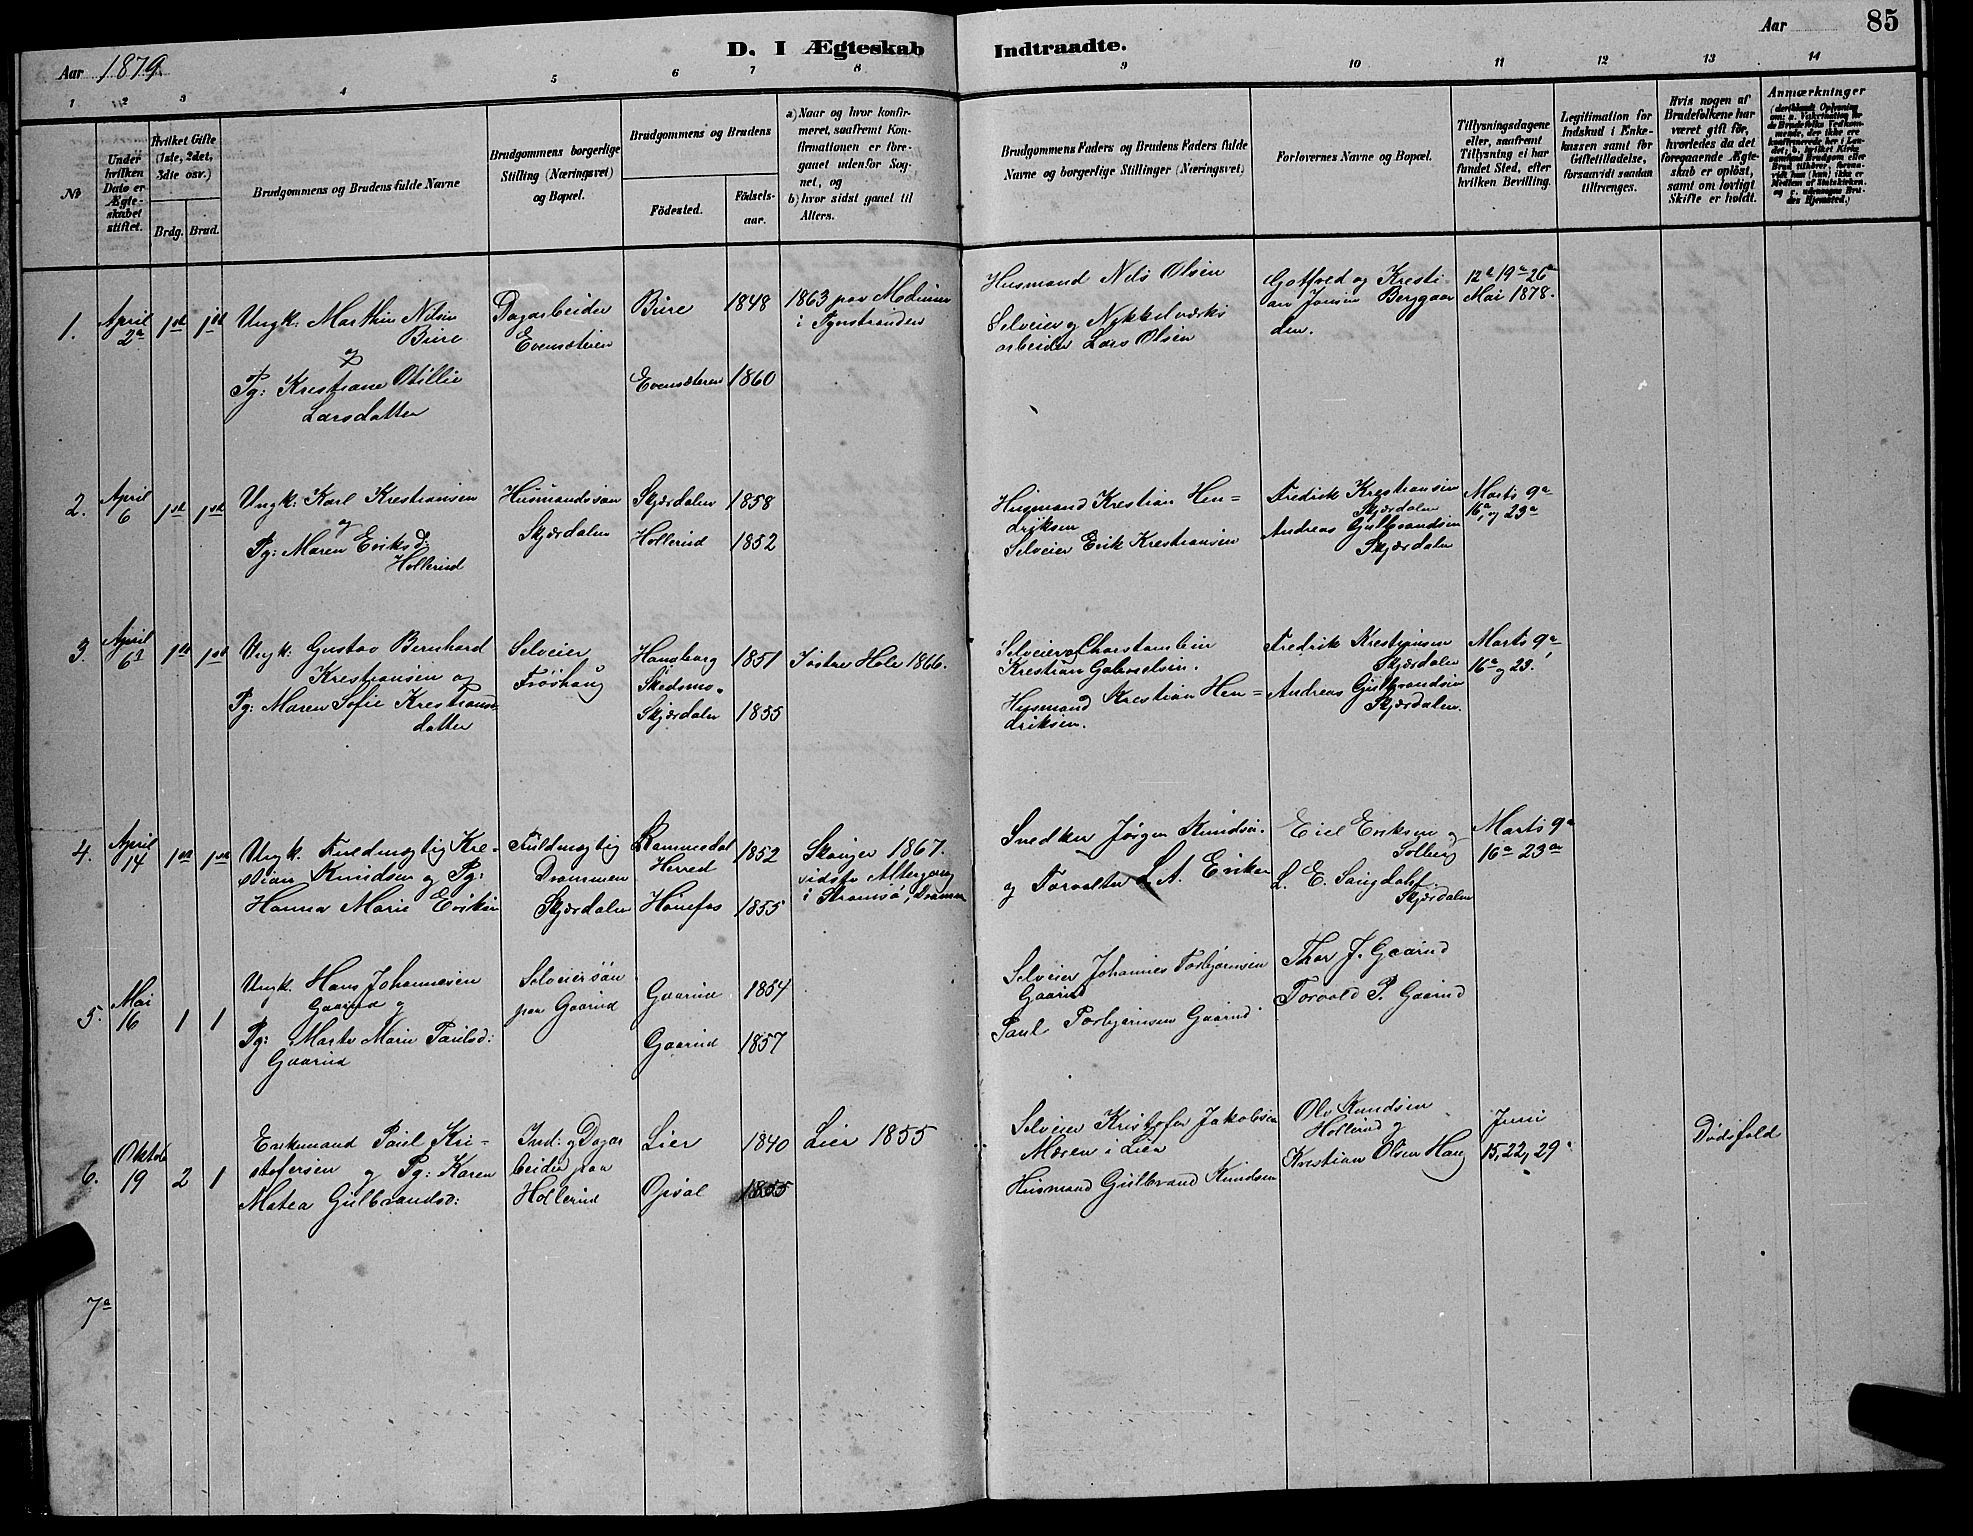 Aar 1879.
D. I Ægteskab Indtraadte.
Aar 85
1 2 3 4 5 6 7 8 9 10 11 12 13 14
No
Under hvilken Dato er Ægteskabet stiftet.
Hvilket Gifte (1ste, 2det, 3die osv.)
Brdg. Brud.
Brudgommens og Brudens fulde Navne
Brudgommens borgerlige Stilling (Næringsvei) og Bopæl.
Brudgommens og Brudens
Födested.
Födsels-aar.
a) Naar og hvor konfirmeret, saafremt Konfirmationen er foregaaet udenfor Sognet, og
b) hvor sidst gaaet til Alters.
Brudgommens Faders og Brudens Faders fulde Navne og borgerlige Stillinger (Næringsvei)
Forlovernes Navne og Bopæl.
Tillysningsdagene eller, saafremt Tillysning ei har fundet Sted, efter hvilken Bevilling.
Legitimation for Indskud i Enkekassen samt for Giftetilladelse, forsaavidt saadan tiltrænges.
Hvis nogen af Brudefolkene har været gift før, hvorledes da det foregaaende Ægteskab er opløst, samt om lovligt Skifte er holdt.
Anmærkninger
1. April 2a 1st 1st
Ungk: Marthin Nilsen Bure
og
Pg: Kristiane Otillie
Larsdatter
Dagarbeider
Evensæteren
Bure 1848
Evensæteren 1860
1863 paa Modum
Husmand Nils Olsen
Selveier og Nykkelværks
arbeider Lars Olsen
Gotfred og Kresti-
an Jonsen Berggaar
den.
12te 19a 26a
Mai 1878.
2. April 6 1st 1st
Ungk: Karl Krestiansen
og
Pg: Maren Eriksd:
Hollerud
Husmandssøn
Skjærdalen
Skjærdalen 1858
Hollerud 1852
Husmand Krestian Hen=
driksen
Selveier Erik Krestiansen
Fredrik Krestiansen
Skjærdalen
Andreas Gulbrandsen
Skjærdalen
Marts 9a
16a, og 23a
3. April 6a 1st 1st
Ungk. Gustav Bernhard
Krestiansen og
Pg: Maren Sofie Krestians-
datter
Selveier
Frøshaug
Haneborg
Skedsmo.
Skjærdalen
1851
1855
Hole 1866.
Selveier
Krestian Gabrielsen.
Husmand Krestian Hen=
driksen.
Fredrik Krestiansen
Skjærdalen
Andreas Gulbrandsen
Skjærdalen.
Marts 9a,
16a og 23.
4. April 14 1st 1st
Ungk. Fuldmægtig Kre-
stian Knudsen og Pg:
Hanna Marie Eriksen
Fuldmægtig
Drammen
Skjærdalen
Herred
Hönefos
1852
1855
Skouger 1867.
sidste Altergang
i Strømsö, Drammen
Snedker Jörgen Knudsen.
og Forvalter L. A. Eriksen
Eriksen og
Solberg
L. E.
Skjærdalen
Marts 9a
16a 23a
5. Mai 16 1 1
Ungk. Hans Johannesen
Gaarud og
Pg: Marte Marie Paulsd:
Gaarud
Selveiersön
paa Gaarud
Gaarud 1854
Gaarud 1857
Selveier Johannes Torbjørnsen
Gaarud
Paul Torbjørnsen Gaarud
Thor J. Gaarud
Torvald P. Gaarud
6. Oktob 19 2 1
Enkemand Paul Kri-
stofersen og Pg: Karen
Matea Gulbrandsd:
Ind: og Dagar
beider paa
Hollerud
Lier 1840
Opsal 1855
Lier 1855
Selveier Kristofer Jakobsen
Mæren i Lier
Husmand Gulbrand Knudsen
Ole Knudsen
Hollerud og
Krestian Olsen Haug
Juni
15, 22, 29
Dødsfald
7a